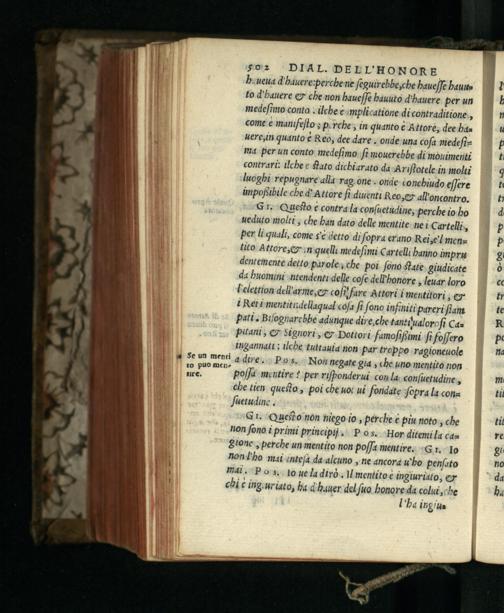 502 DIAL. DELL'HONORE
haueua d'hauere: perche ne seguirebbe, che hauesse hauu-
to d'hauere & che non hauesse hauuto d'hauere per un
medesimo conto. ilche è mplicatione di contraditione,
come è manifesto; perche, in quanto è Attore, dee ha-
uere, in quanto è Reo, dee dare. onde una cosa medesi-
ma per un conto medesimo si mouerebbe di mouimenti
contrari: ilche è stato dichiarato da Aristotele in molti
luoghi repugnare alla ragione. onde conchiudo essere
impoßibile che d'Attore si diuenti Reo, & all'oncontro.
GI. Questo è contra la consuetudine, perche io ho
ueduto molti, che han dato delle mentite ne i Cartelli,
per li quali, come s'è detto di sopra erano Rei, e'l men-
tito Attore, & in quelli medesimi Cartelli hanno impru
dentemente detto parole, che poi sono state giudicate
da huomini intendenti delle cose dell'honore, leuar loro
l'elettion dell'arme, & cosi fare Attori i mentitori, &
i Rei i mentiti: dellaqual cosa si sono infiniti pareri stam
pati. Bisognarebbe adunque dire, che tanti ualorosi Ca-
pitani, & Signori, & Dottori famosißimi si fossero
ingannati: ilche tuttauia non par troppo ragioneuole
a dire. POS. Non negate gia, che uno mentito non
possa mentire? per risponderui con la consuetudine,
che tien questo, poi che uoi ui fondate sopra la con-
suetudine.
Se un menti
to può men-
tire.
GI. Questo non niego io, perche è piu noto, che
non sono i primi principij. POS. Hor ditemi la ca-
gione, perche un mentito non possa mentire. GI. Io
non l'ho mai intesa da alcuno, ne ancora u'ho pensato
mai. POS. Io ue la dirò. Il mentito è ingiuriato, &
chi è ingiuriato, ha d'hauer del suo honore da colui, che
l'ha ingiu-